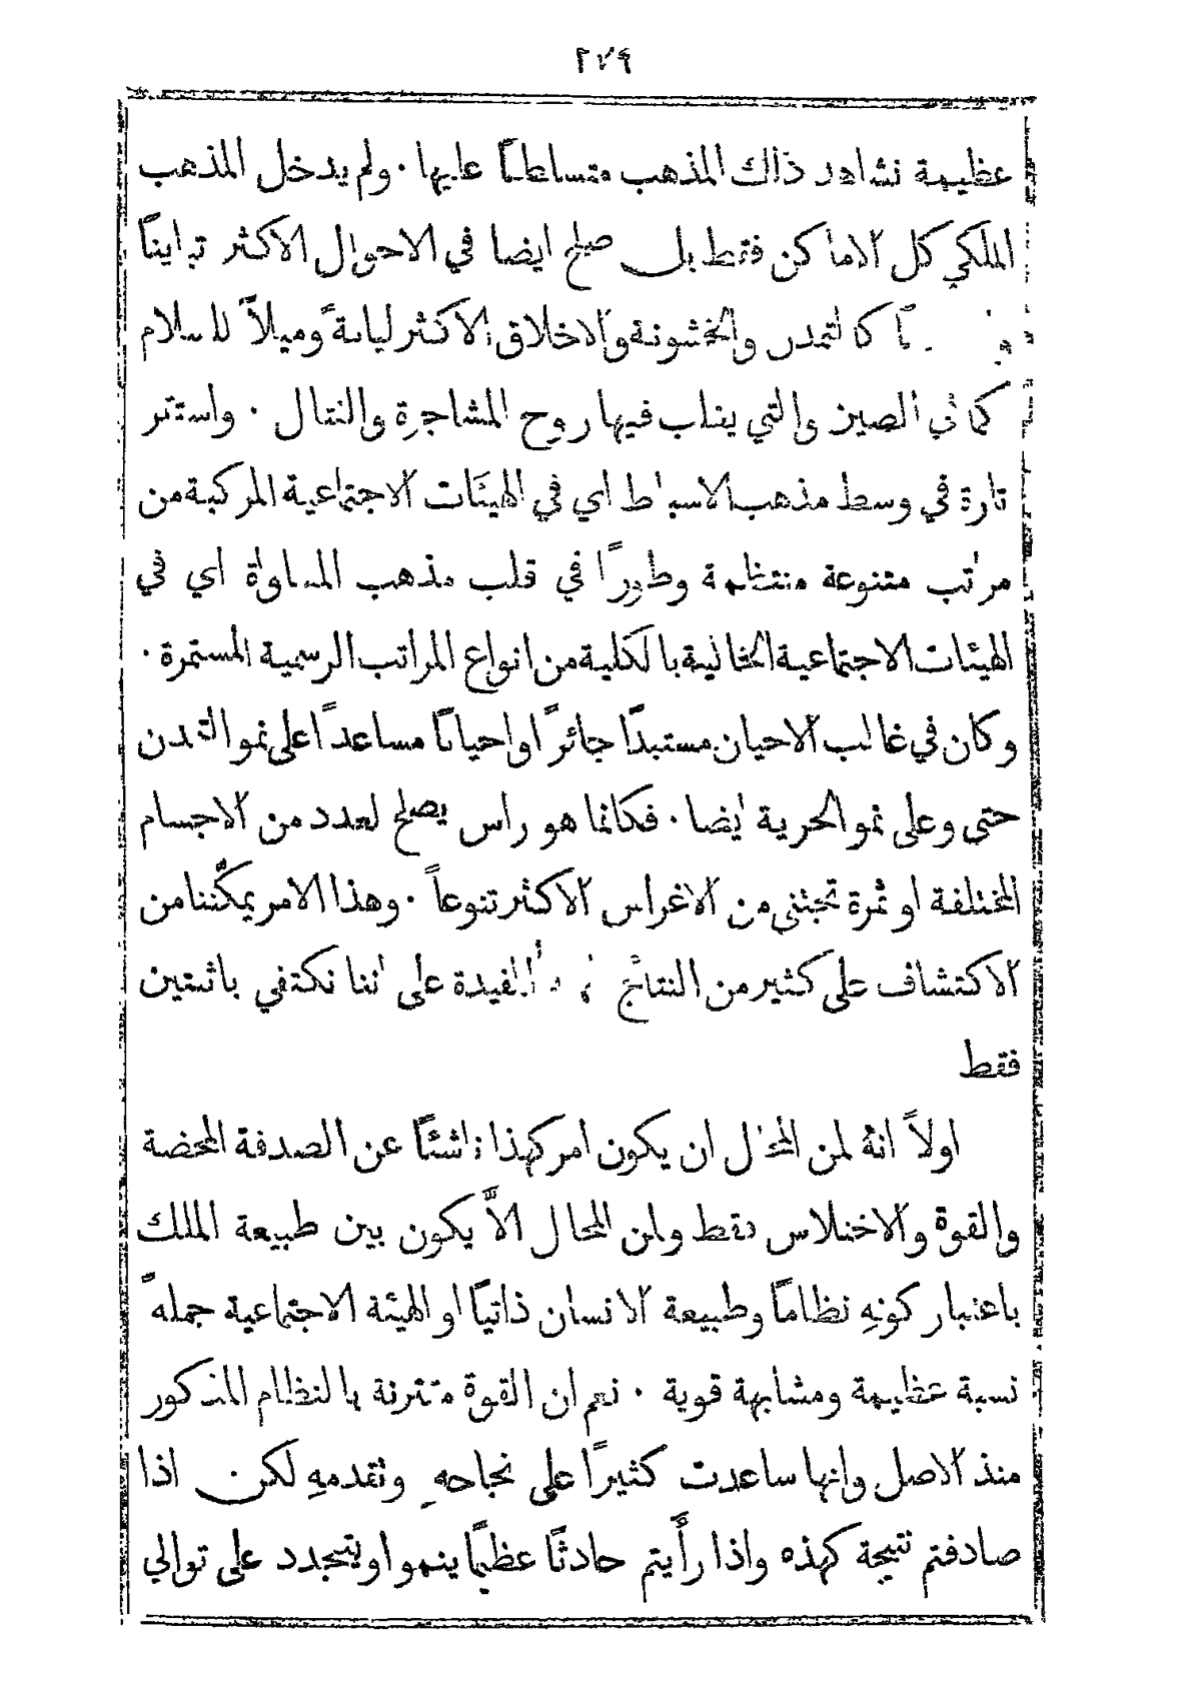 ٢٧٩
عظيمة نشاهد ذلك المذهب متسلطًا عليها ٠ ولم يدخل المذهب
الملكي كل الاماكن فقط بل صلح ايضا في الاحوال الاكثر تباينًا
كالتمدن والخشونة والاخلاق الاكثر ليانةً وميلاً للسلام
كما في الصين والتي يغلب فيها روح المشاجرة والقتال ٠ واستقر
تارة في وسط مذهب الاسباط اي في الهيئات الاجتماعية المركبة من
مراتب متنوعة منتظمة وطورًا في قلب مذهب المساواة اي في
الهيئات الاجتماعية الخالية بالكلية من انواع المراتب الرسمية المستمرة ٠
وكان في غالب الاحيان مستبدًا جائرًا واحيانًا مساعدًا على نمو التمدن
حتى وعلى نمو الحرية ايضا ٠ فكانما هو راس يصلح لعدد من الاجسام
المختلفة او ثمرة تجتنى من الاغراس الاكثر تنوعاً ٠ وهذا الامر يمكّننا من
الاكتشاف على كثير من النتائج المفيدة على اننا نكتفي باثنتين
فقط
اولاً انهُ لمن المحال ان يكون امر كهذا ناشئًا عن الصدفة المحضة
والقوة والاختلاس فقط ولمن المحال الاَّ يكون بين طبيعة الملك
باعتبار كونهِ نظامًا وطبيعة الانسان ذاتيًا او الهيئة الاجتماعية جملهً
نسبة عظيمة ومشابهة قوية ٠ نعم ان القوة مقترنة بالنظام المذكور
منذ الاصل وانها ساعدت كثيرًا على نجاحهِ وتقدمهِ لكن اذا
صادفتم نتيجة كهذه واذا رأَيتم حادثًا عظيمًا ينمو او يتجدد على توالي